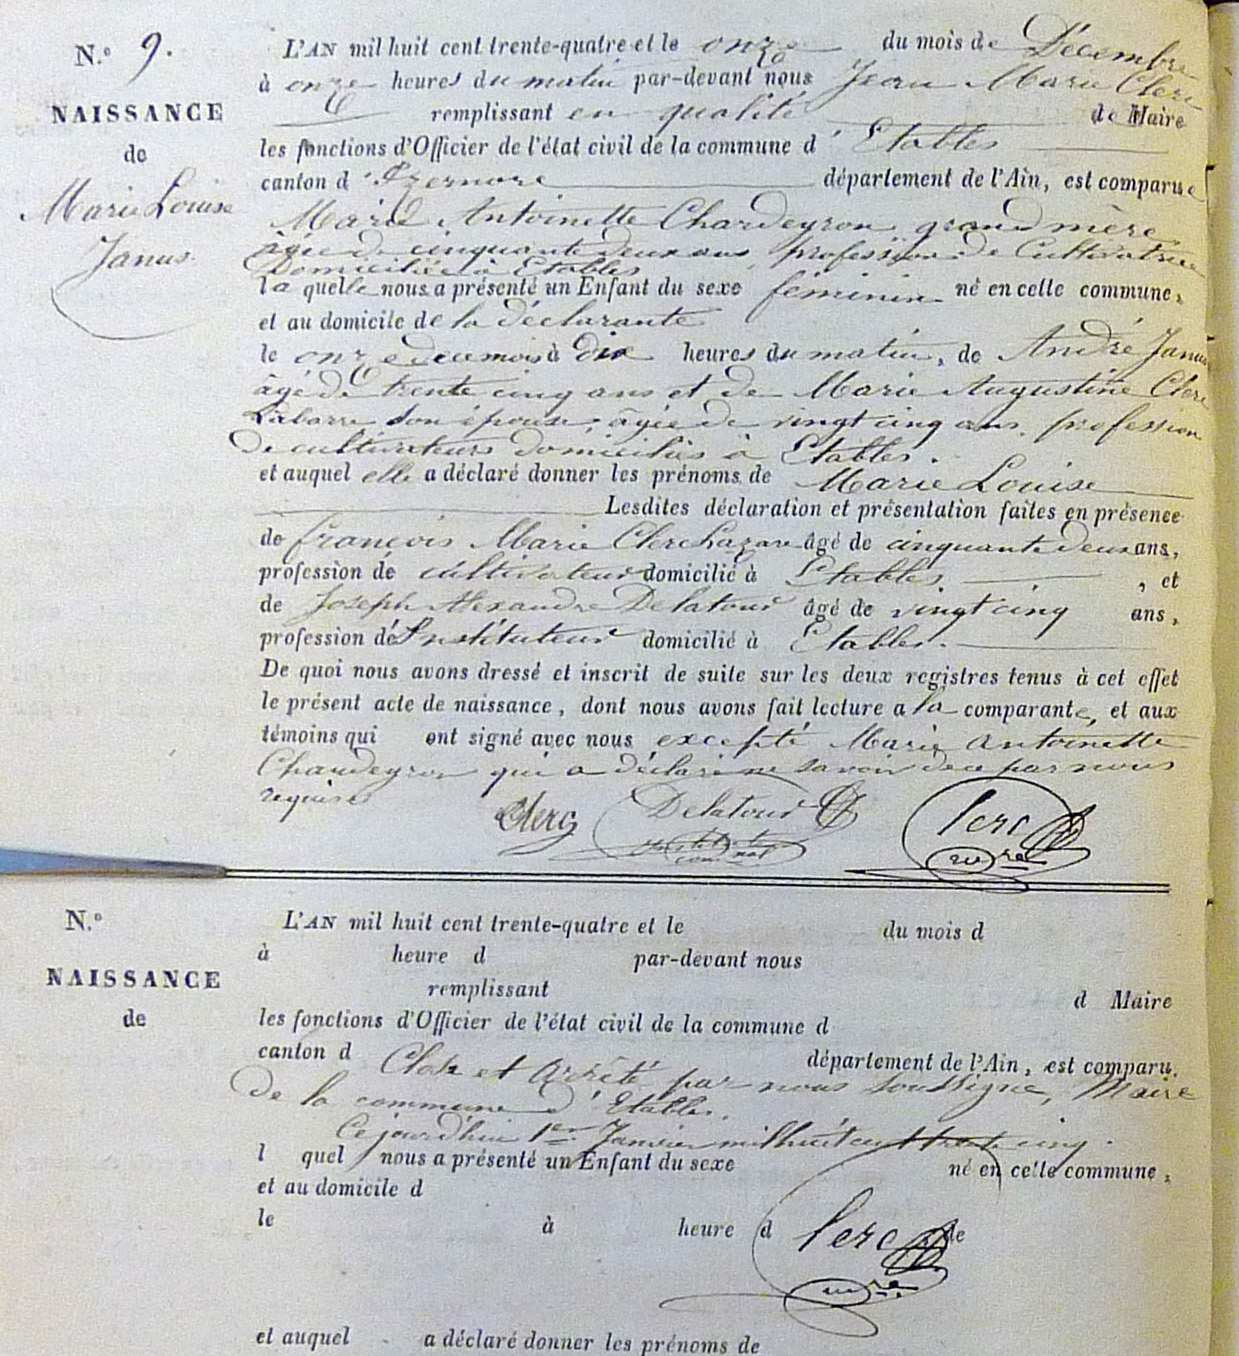 N.o 9.
NAISSANCE
de
Marie Louise
Janus.
L'AN mil huit cent trente-quatre et le onze du mois de Décembre
à onze heures du matin par-devant nous Jean Marie Clerc
remplissant en qualité de Maire
les fonctions d'Officier de l'état civil de la commune d'Etables
canton d'Izernore département de l'Ain, est comparue
Marie Antoinette Chardeyron grand mère
âgée de cinquante deux ans, profession de Cultivatrice
Domiciliée à Etables
la quelle nous a présenté un Enfant du sexe féminin né en celle commune,
et au domicile de la déclarante
le onze de ce mois à dix heures du matin, de André Janus
âgé de trente cinq ans et de Marie Augustine Clerc
Labarre son épouse, âgée de vingt cinq ans, profession
de cultivateurs domiciliés à Etables.
et auquel elle a déclaré donner les prénoms de Marie Louise
Lesdites déclaration et présentation faites en présence
de françois Marie Clerc Lazare âgé de cinquante deux ans,
profession de cultivateur domicilié à Etables, et
de Joseph Alexandre Delatour âgé de vingt cinq ans,
profession d'Instituteur domicilié à Etables.
De quoi nous avons dressé et inscrit de suite sur les deux registres tenus à cet effet
le présent acte de naissance, dont nous avons fait lecture a la comparante, et aux
témoins qui ont signé avec nous excepté Marie antoinette
Chardeyron qui a déclaré ne savoir de ce par nous
requise
Clerc Delatour Clerc
maire
N.o
NAISSANCE
de
L'AN mil huit cent trente-quatre et le du mois d
à heure d par-devant nous
remplissant d Maire
les fonctions d'Officier de l'état civil de la commune d
canton d département de l'Ain, est comparu.
Clos et arrêté par nous soussigné, Maire
de la commune d'Etables.
Ce jourd'hui 1er Janvier mil huit cent trente cinq.
l quel nous a présenté un Enfant du sexe né en celle commune,
et au domicile d
le à heure d de
Clerc
maire
et auquel a déclaré donner les prénoms de